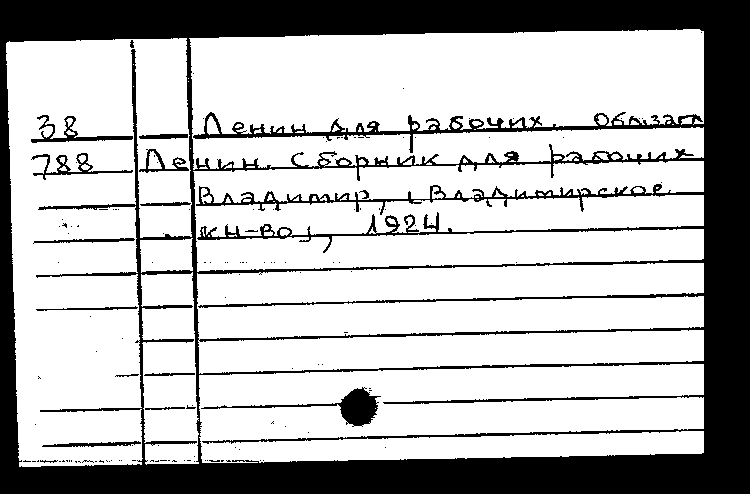 38 Ленин для рабочих. Обл.загл
788 Ленин. Сборник для рабочих
Владимир, [Владимирское
кн-во], 1924.